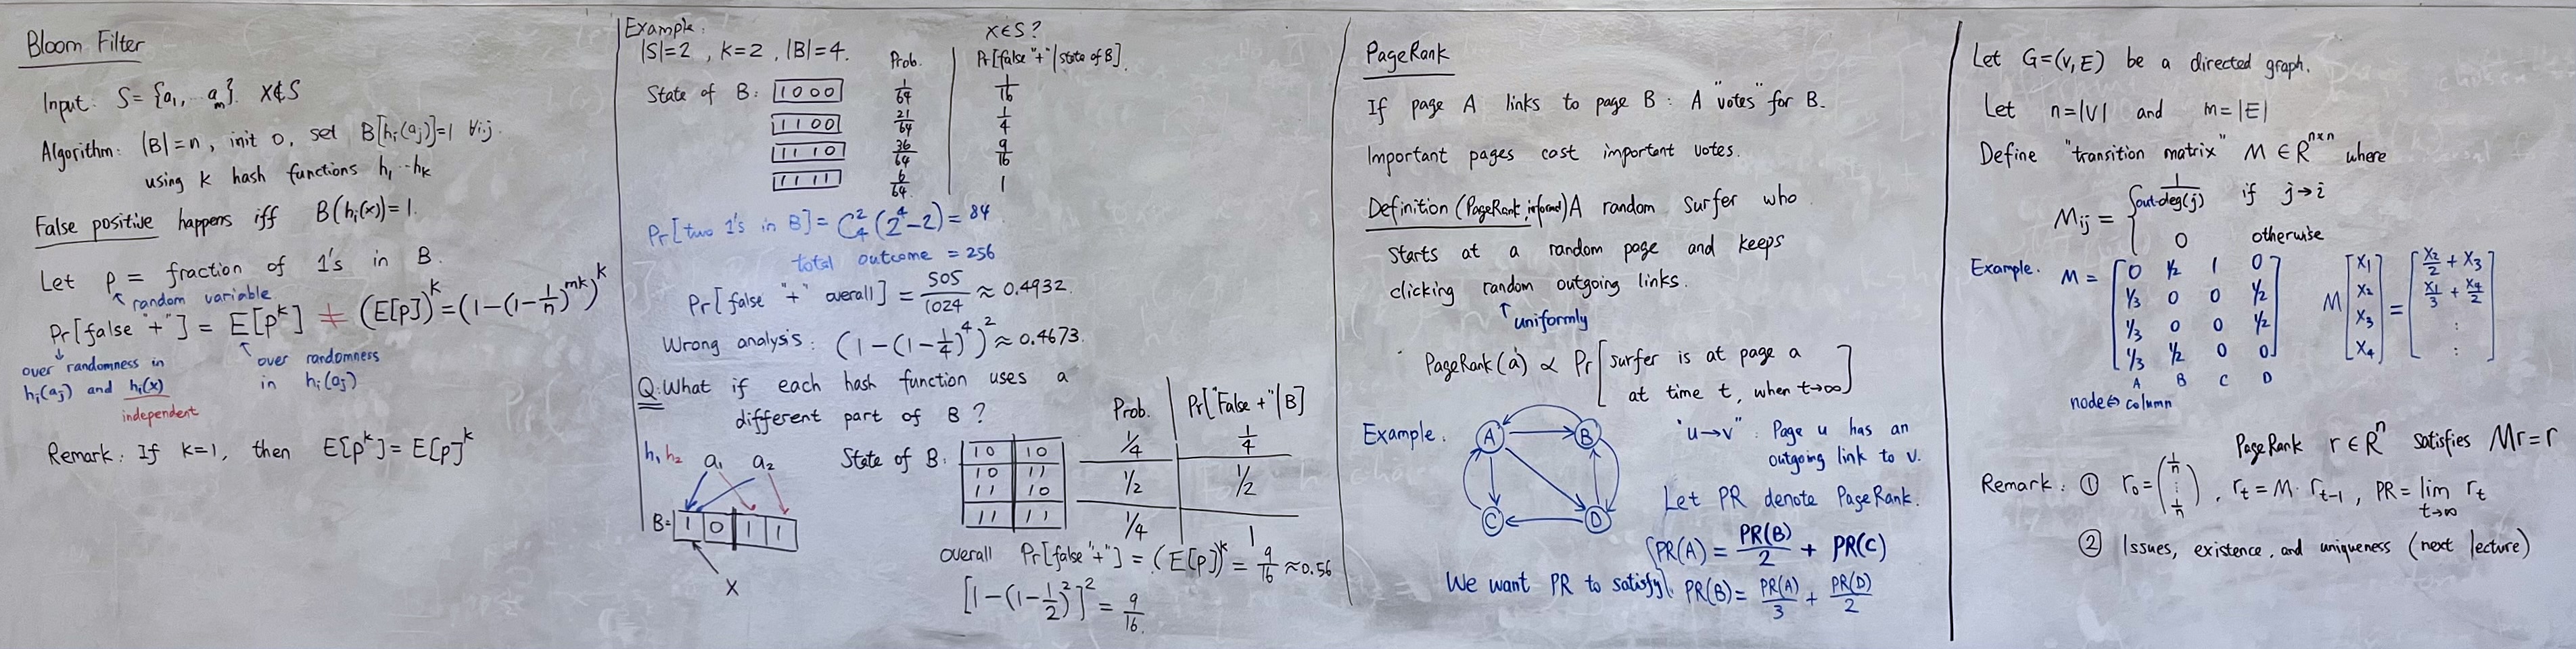 Bloom Filter
Input: S = {a₁, ... aₘ}. x∉S
Algorithm: |B|=n, init 0, set B[hᵢ(aⱼ)]=1 ∀i,j.
using k hash functions h₁...hₖ
False positive happens iff B(hᵢ(x))=1.
Let ρ = fraction of 1's in B.
↑ random variable
Pr[false "+"] = E[ρᵏ] ≠ (E[ρ])ᵏ = (1-(1-1/n)^{mk})^k
↓ over randomness in hᵢ(aⱼ) and hᵢ(x)
independent
↑ over randomness in hᵢ(aⱼ)
Remark: If k=1, then E[ρᵏ] = E[ρ]ᵏ
Example:
|S|=2, k=2, |B|=4.
x∈S?
Prob. Pr[false "+" | state of B].
State of B: 1 0 0 0 1/64 1/16
1 1 0 0 21/64 1/4
1 1 1 0 36/64 9/16
1 1 1 1 6/64 1
Pr[two 1's in B] = C₄² (2⁴-2) = 84
total outcome = 256
Pr[false "+" overall] = 505/1024 ≈ 0.4932.
Wrong analysis: (1-(1-1/4)⁴)² ≈ 0.4673.
Q: What if each hash function uses a
different part of B?
h₁ h₂ a₁ a₂
B= 1 0 1 1
x
Prob. Pr["False +" | B]
State of B: 10 10 1/4 1/4
10 11
11 10 1/2 1/2
11 11 1/4 1
overall Pr[false "+"] = (E[ρ])ᵏ = 9/16 ≈ 0.56
[1-(1-1/2)²]² = 9/16.
PageRank
If page A links to page B: A "votes" for B.
Important pages cast important votes.
Definition (PageRank, informal) A random surfer who
starts at a random page and keeps
clicking random outgoing links.
↑ uniformly
PageRank(a) ∝ Pr[surfer is at page a
at time t, when t→∞]
Example:
A B
C D
"u→v": Page u has an
outgoing link to v.
Let PR denote PageRank.
We want PR to satisfy { PR(A) = PR(B)/2 + PR(C)
PR(B) = PR(A)/3 + PR(D)/2
Let G=(V,E) be a directed graph.
Let n=|V| and m=|E|
Define "transition matrix" M ∈ R^{n×n} where
Mᵢⱼ = { 1/out-deg(j) if j→i
0 otherwise
Example. M = [
0 1/2 1 0
1/3 0 0 1/2
1/3 0 0 1/2
1/3 1/2 0 0
]
A B C D
node⇔column
M [x₁ x₂ x₃ x₄] = [x₂/2 + x₃
x₁/3 + x₄/2
:
:]
PageRank r ∈ Rⁿ satisfies Mr=r
Remark: ① r₀=(1/n ⋮ 1/n), rₜ = M · rₜ₋₁, PR = lim_{t→∞} rₜ
② Issues, existence, and uniqueness (next lecture)